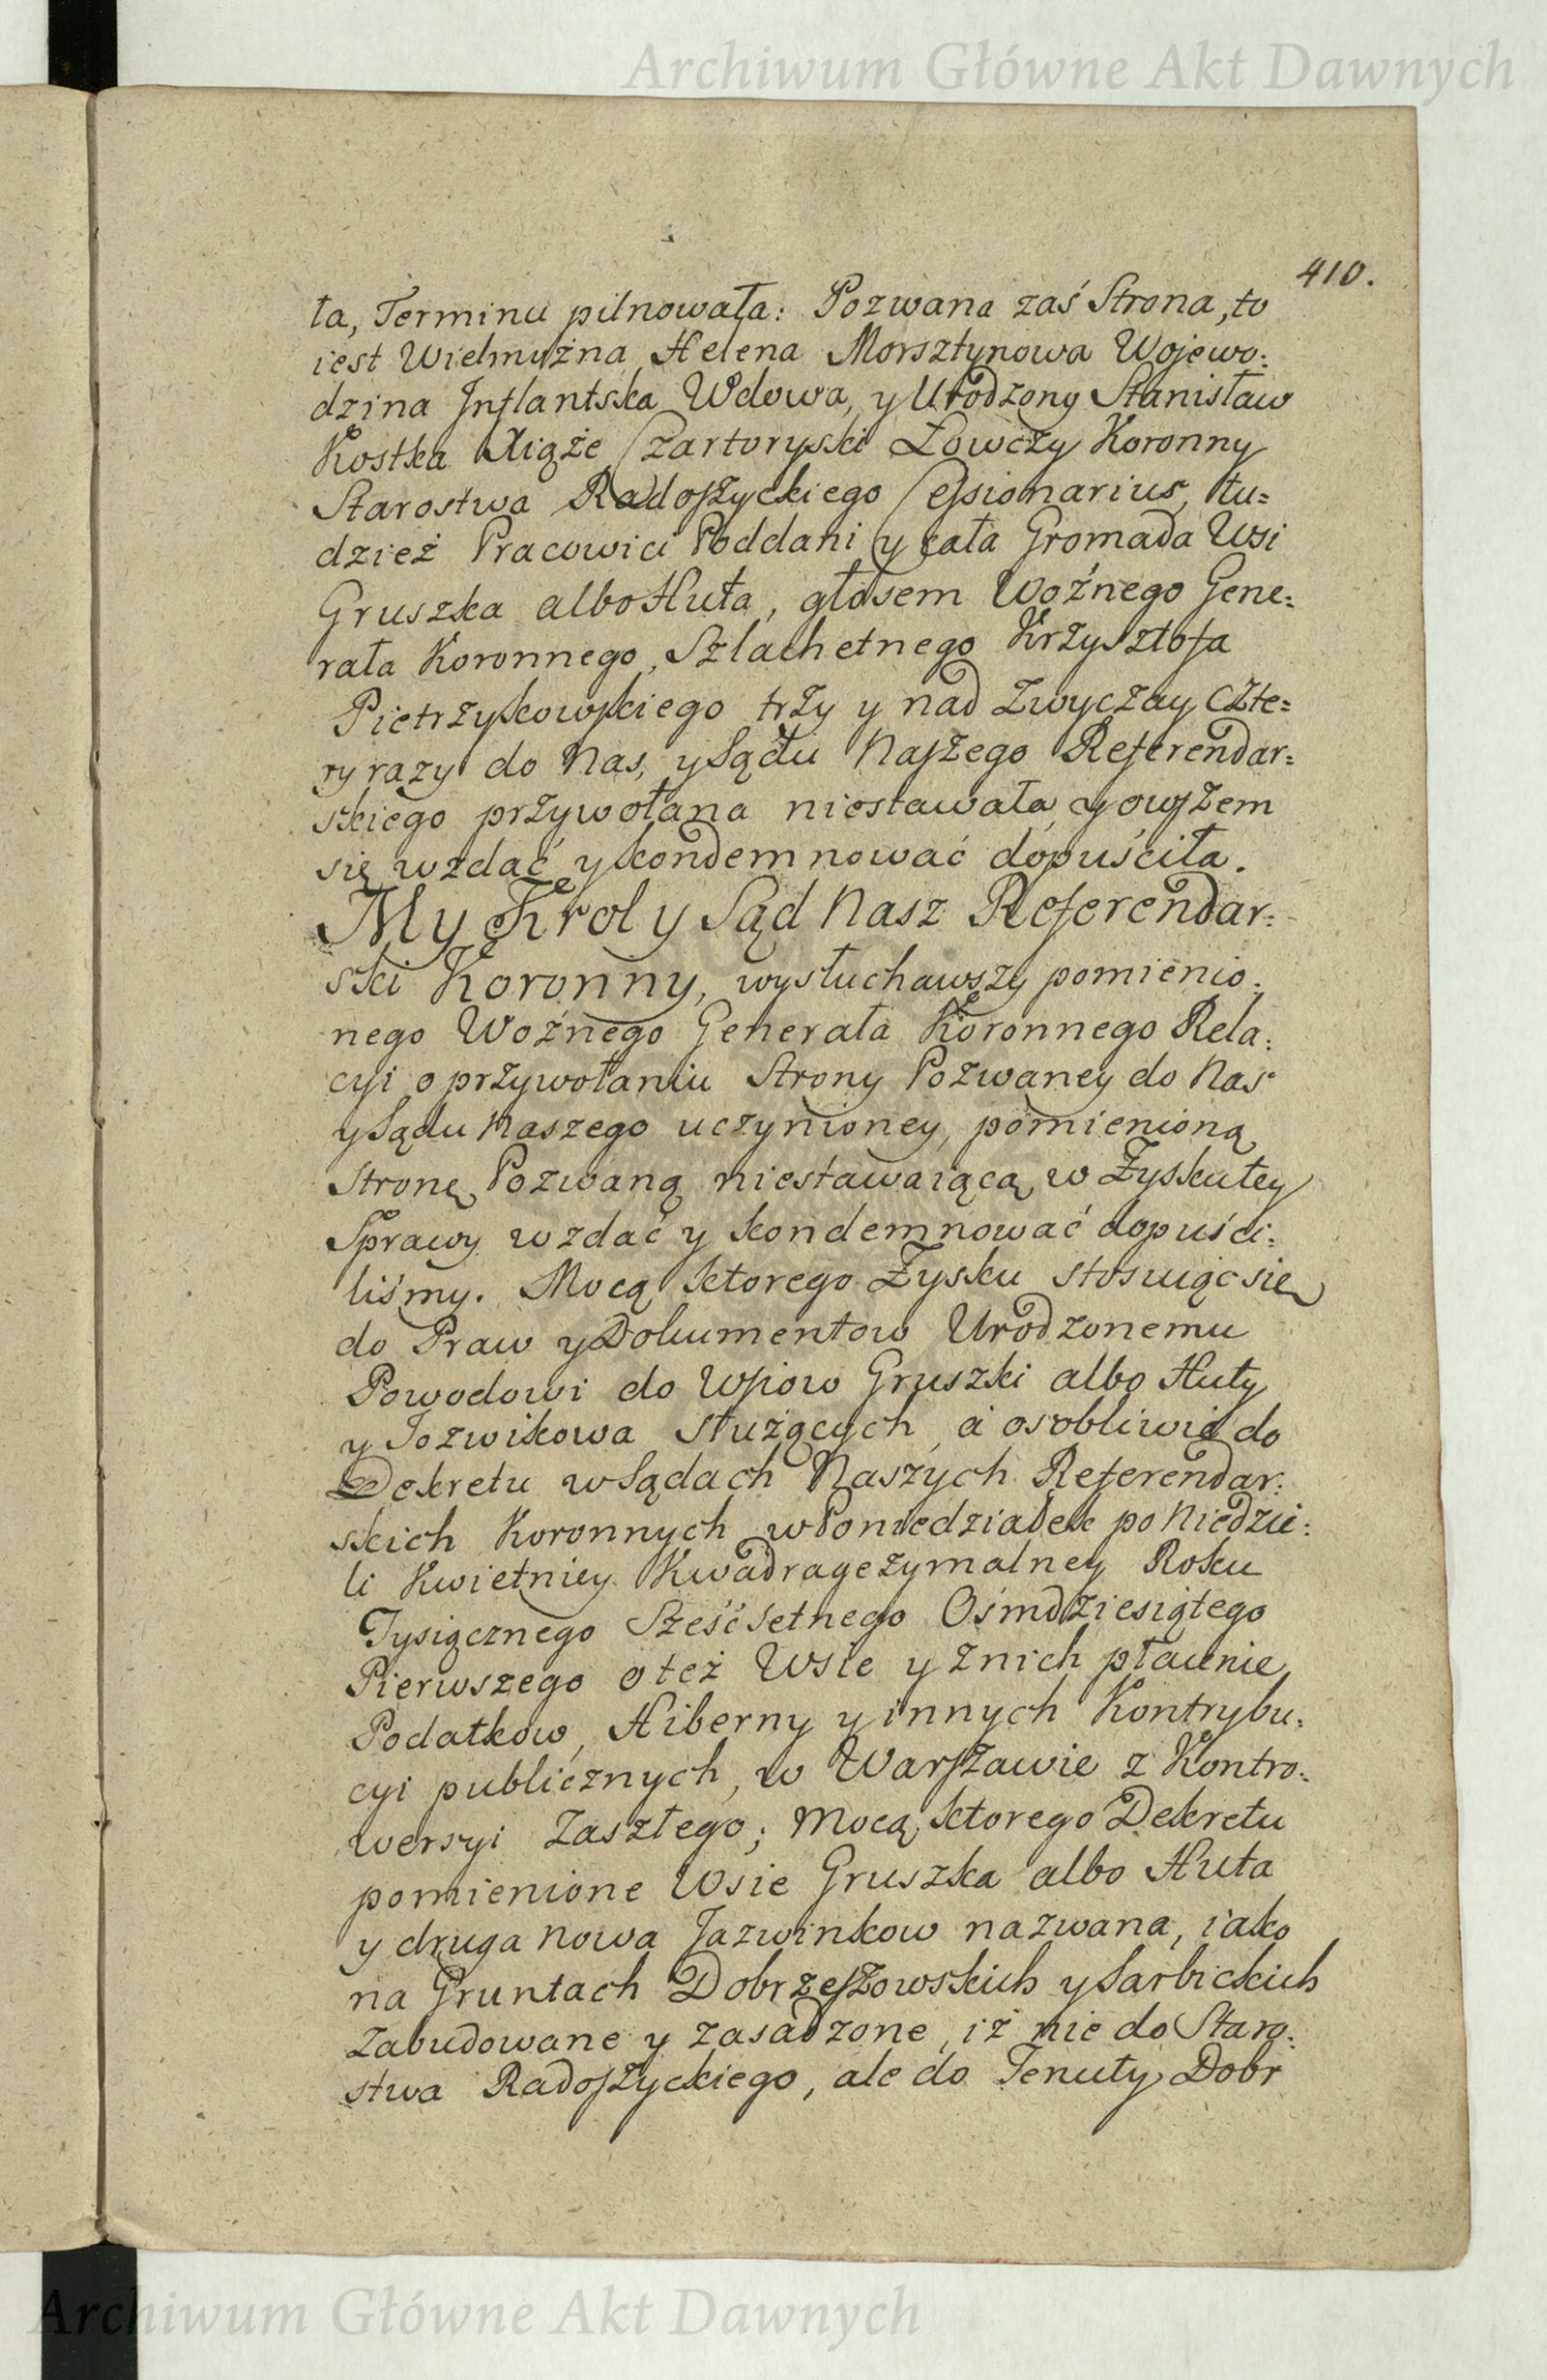 Archiwum Główne Akt Dawnych
410.
ła, Terminu pilnowała: Pozwana zaś Strona, to
iest Wielmożna Helena Morsztynowa Wojewo:
dzina Inflantska Wdowa, y Urodzony Stanisław
Kostka Xiąże Czartoryski Łowczy Koronny
Starostwa Radoszyckiego Cessionarius, tu=
dzież Pracowici Poddani y cała Gromada Wsi
Gruszka albo Huta, głosem Woźnego Gene:
rała Koronnego, Szlachetnego Krzysztofa
Pietrzykowskiego trzy y nad Zwyczay czte=
ry razy do Nas, y Sądu Naszego Referendar=
skiego przywołana niestawała, y owszem
się wzdać y kondemnować dopuściła.
My Krol y Sąd Nasz Referendar:
ski Koronny, wysłuchawszy pomienio:
nego Woźnego Generała Koronnego Rela:
cyi o przywołaniu Strony Pozwaney do Nas
y Sądu Naszego uczynioney, pomienioną
Stronę Pozwaną niestawaiącą w Zysku tey
Sprawy wzdać y kondemnować dopuści:
liśmy. Mocą ktorego Zysku stosuiąc się
do Praw y Dokumentow Urodzonemu
Powodowi do Wsiow Gruszki albo Huty
y Jozwikowa służących, a osobliwie do
Dekretu w Sądach Naszych Referendar:
skich Koronnych w Poniedziałek po Niedzie:
li Kwietniey Kwadragezymalney Roku
Tysiącznego Sześćsetnego Ośmdziesiątego
Pierwszego o też Wsie y z nich płacenie
Podatkow, Hiberny y innych Kontrybu:
cyi publicznych, w Warszawie z Kontro:
wersyi Zaszłego; Mocą ktorego Dekretu
pomienione Wsie Gruszka albo Huta
y druga nowa Jazwinkow nazwana, iako
na Gruntach Dobrzeszowskich y Sarbickich
Zabudowane y zasadzone, iż nie do Staro:
stwa Radoszyckiego, ale do Tenuty Dobr
Archiwum Główne Akt Dawnych